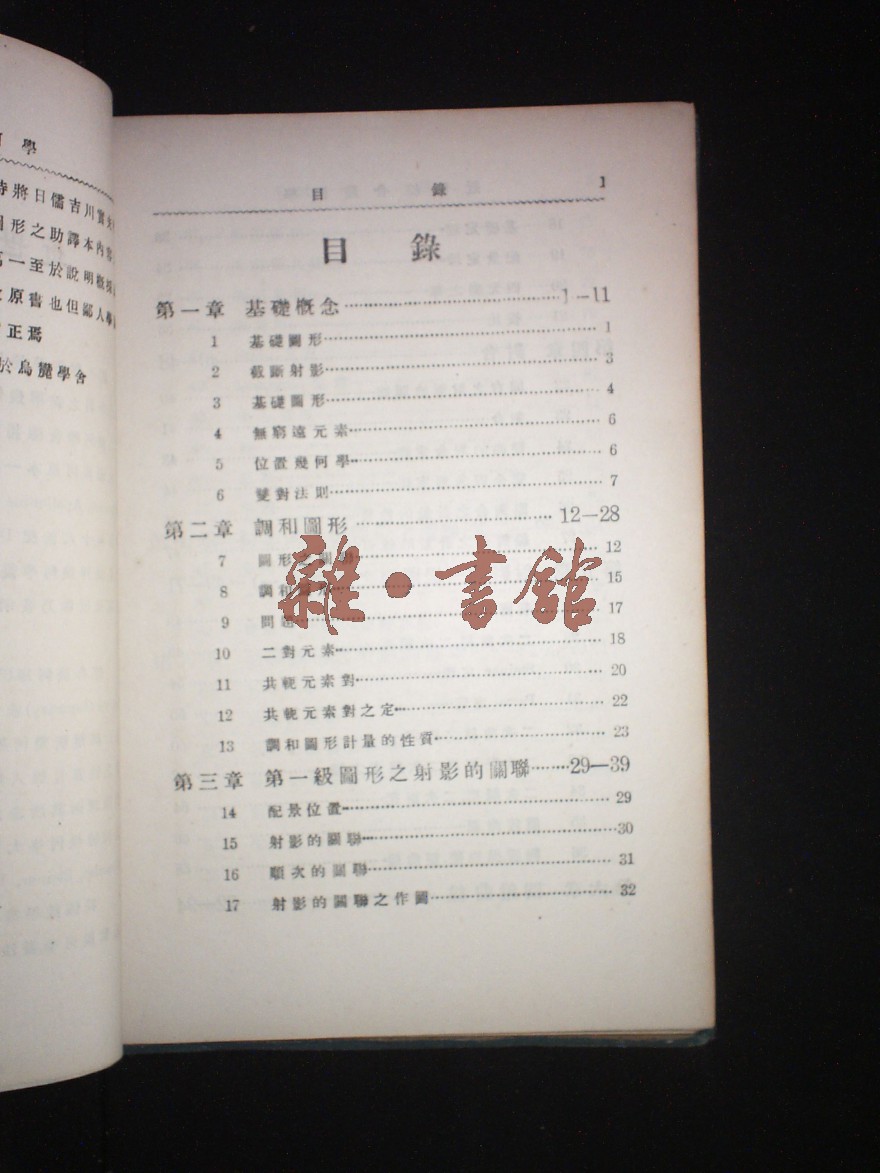 學
時將日儒吉川實夫
圖形之助譯本內容
萬一至於說明概採
原舊也但鄙人學
正焉
於烏龍學舍
目錄 1
目錄
第一章 基礎槪念 1—11
1 基礎圖形 1
2 截斷射影 3
3 基礎圖形 4
4 無窮遠元素 6
5 位置幾何學 6
6 雙對法則 7
第二章 調和圖形 12—28
7 圖形之 12
8 調和 15
9 問題 17
10 二對元素 18
11 共軛元素對 20
12 共軛元素對之定 22
13 調和圖形計量的性質 23
第三章 第一級圖形之射影的關聯 29—39
14 配景位置 29
15 射影的關聯 30
16 順次的關聯 31
17 射影的關聯之作圖 32
雜·書館